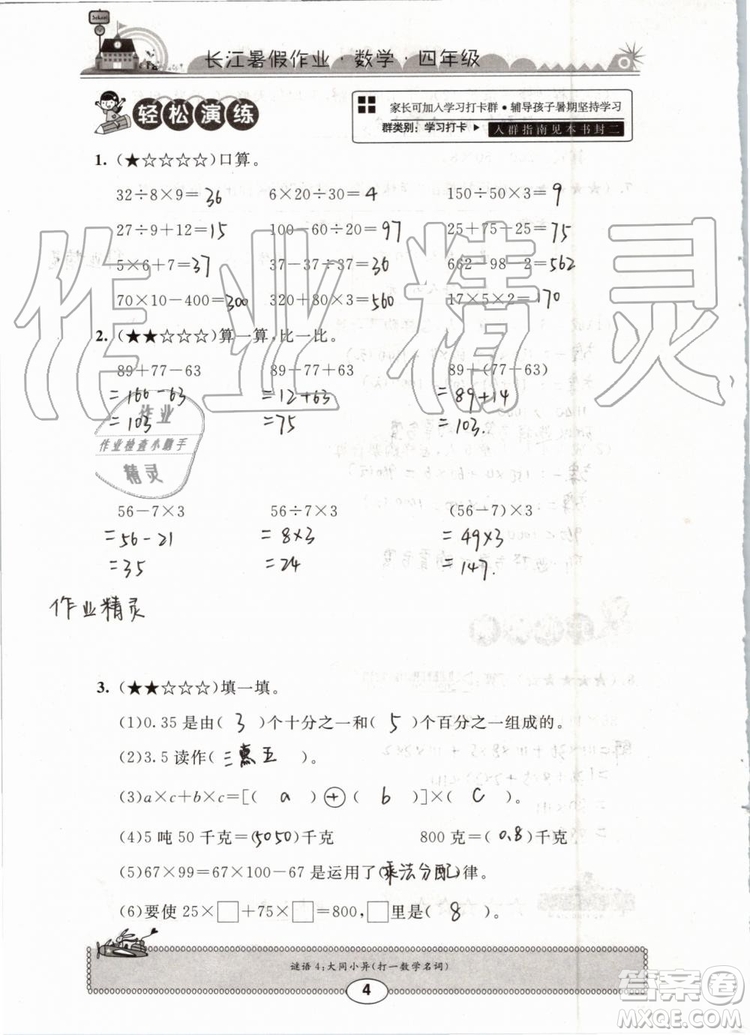 School
长江暑假作业·数学·四年级
轻松演练
家长可加入学习打卡群·辅导孩子暑期坚持学习
群类别：学习打卡▶人群指南见本书封二
1.(★☆☆☆☆)口算。
32÷8×9=36 6×20÷30=4 150÷50×3=9
27÷9+12=15 100-60÷20=97 25+75-25=75
5×6+7=37 37-37÷37=36 662-98-2=562
70×10-400=300 320+80×3=560 17×5×2=170
2.(★★☆☆☆)算一算,比一比。
89+77-63 89-77+63 89+(77-63)
=166-63 =12+63 =89+14
=103 =75 =103.
作业
作业检查小助手
精灵
56-7×3 56÷7×3 (56-7)×3
=56-21 =8×3 =49×3
=35 =24 =147.
作业精灵
3.(★★☆☆☆)填一填。
(1)0.35是由(3)个十分之一和(5)个百分之一组成的。
(2)3.5读作(三点五)
(3)a×c+b×c=[(a)+(b)]×(c)
(4)5吨50千克=(5050)千克 800克=(0.8)千克
(5)67×99=67×100-67是运用了(乘法分配)律。
(6)要使25×□+75×□=800,□里是(8)
谜语4:大同小异(打一数学名词)
4
作业精灵
答案圈
MXQE.COM